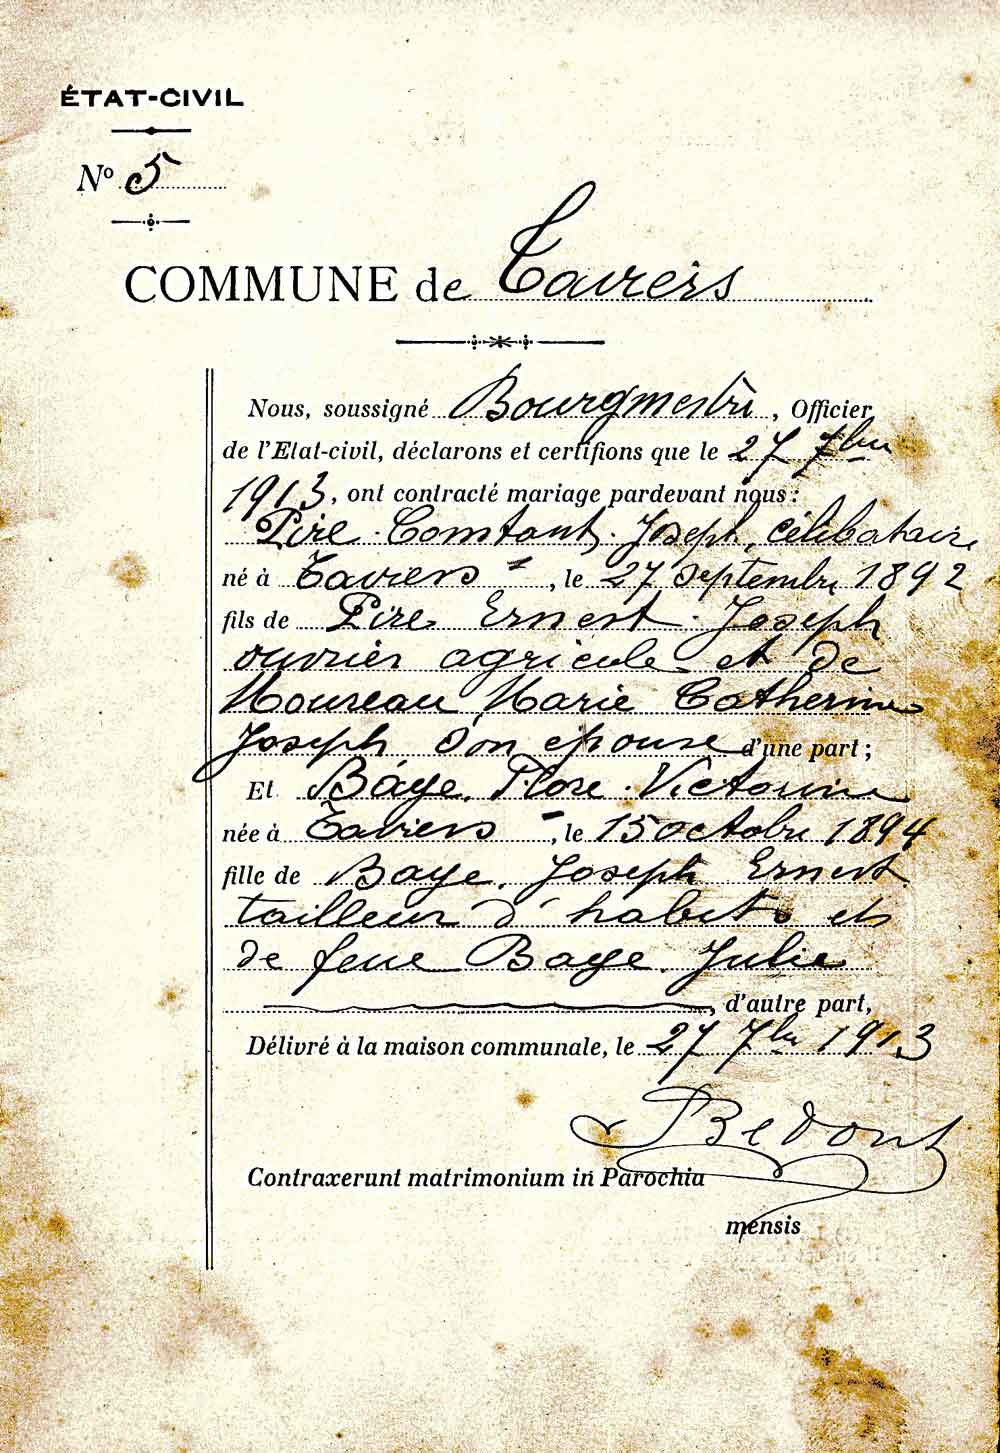 ÉTAT-CIVIL
Nº 5
COMMUNE de Taviers
Nous, soussigné Bourgmestre, Officier
de l'Etat-civil, déclarons et certifions que le 27 7bre
1913, ont contracté mariage pardevant nous :
Pire Constant Joseph, célibataire
né à Taviers, le 27 septembre 1892
fils de Pire Ernest Joseph
ouvrier agricole et de
Mouseau Marie Catherine
Joseph son épouse d'une part ;
Et Baye Flore Victorine
née à Taviers, le 15 octobre 1894
fille de Baye Joseph Ernest
tailleur d'habits et
de feue Baye Julie
, d'autre part,
Délivré à la maison communale, le 27 7bre 1913
Contraxerunt matrimonium in Parochia
mensis